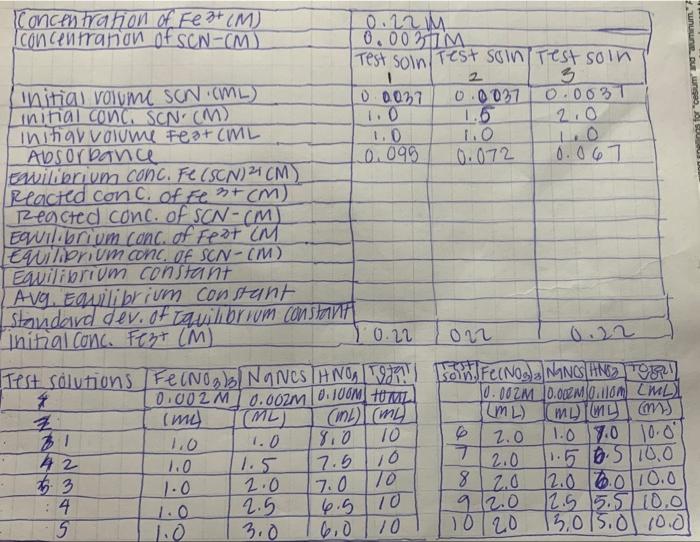 Concentration of Fe3+ (M) 0.22 M
Concentration of SCN-(M) 0.0037M
Test soln 1 Test soln 2 Test soln 3
initial volume SCN-(ML) 0.0037 0.0037 0.0037
initial conc. SCN-(M) 1.0 1.5 2.0
initial volume Fe3+ (ML 1.0 1.0 1.0
Absorbance 0.099 0.072 0.067
Equilibrium conc. Fe(SCN)2+ (M)
Reacted conc. of Fe3+ (M)
Reacted conc. of SCN-(M)
Equilibrium conc. of Fe3+ (M
Equilibrium conc. of SCN-(M)
Equilibrium constant
Avg. Equilibrium constant
Standard dev. of Equilibrium constant
initial conc. Fe3+ (M) 0.22 022 0.22
Test solutions Fe(NO3)3 NaNCS HNO3 Total
0.002M 0.002M 0.100M
(mL) (ML) (mL) (mL)
1 1.0 1.0 8.0 10
2 1.0 1.5 7.5 10
3 1.0 2.0 7.0 10
4 1.0 2.5 6.5 10
5 1.0 3.0 6.0 10
Test soln. Fe(NO3)3 NaNCS HNO3 Total
0.002M 0.002M 0.110M (mL)
(mL) (mL) (mL) (mL)
6 2.0 1.0 7.0 10.0
7 2.0 1.5 6.5 10.0
8 2.0 2.0 6.0 10.0
9 2.0 2.5 5.5 10.0
10 2.0 3.0 5.0 10.0